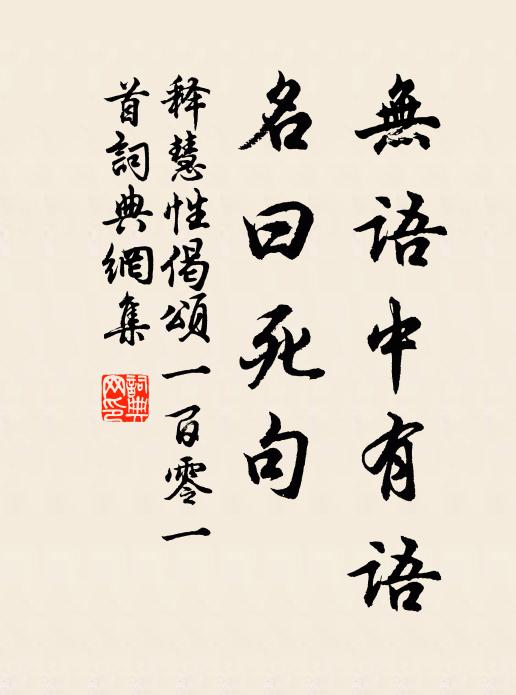 無語中有語
名曰死句
释慧性偈頌一百零一
首詞典網集
詞典网印